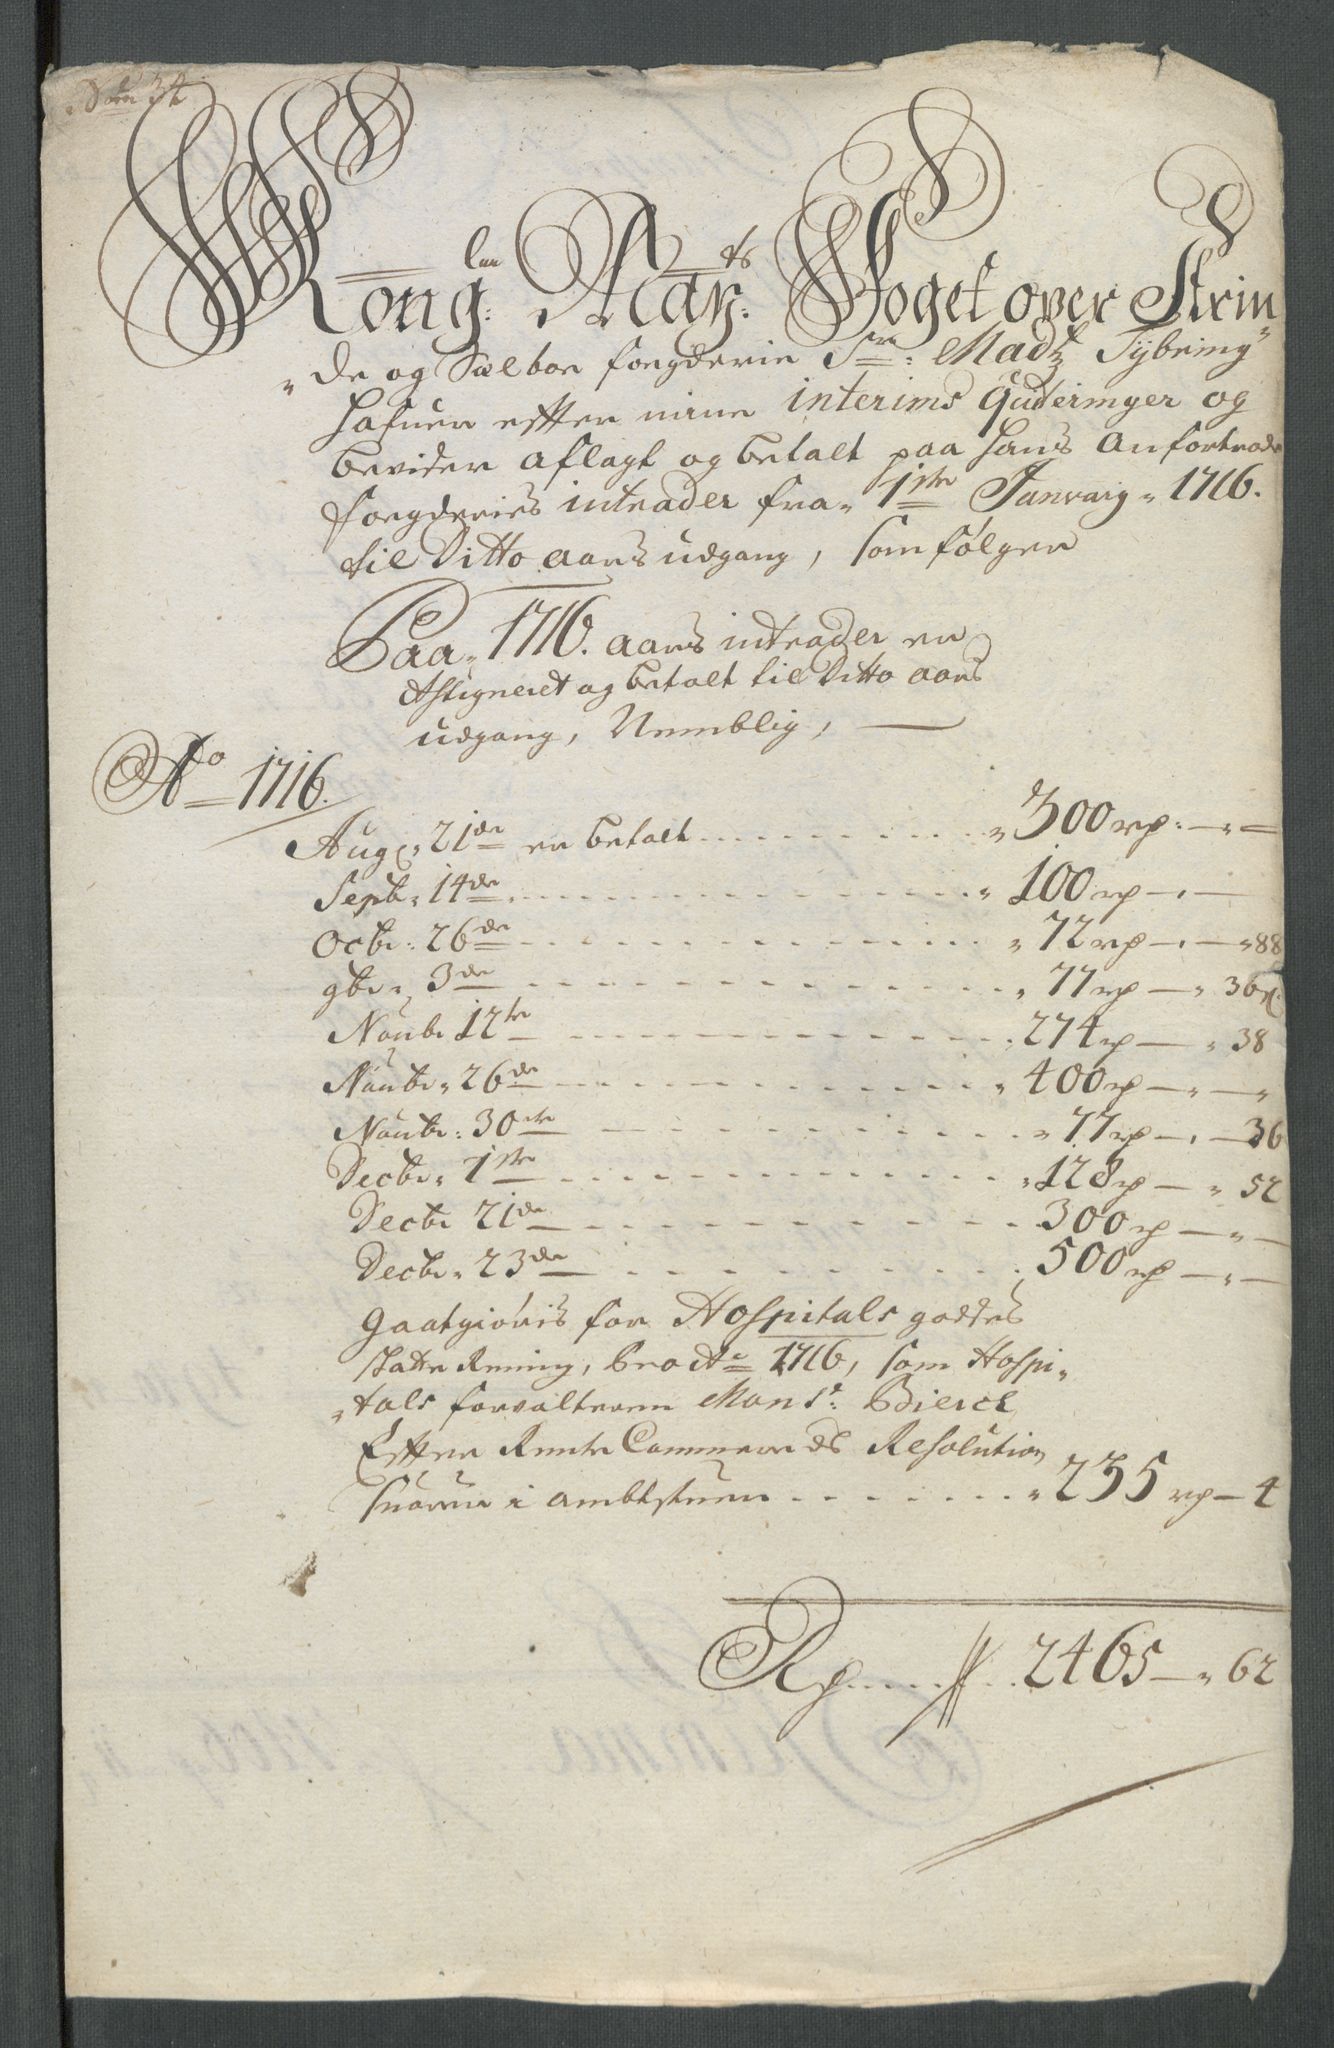 Kong: Lau May: ts Foget over Strin
de og Sælboe fougderie Sr: Madz Tybring
Hafuer effter mine interims Quiteringer og
beviser aflagt og betalt paa hans anfortrode
fougderies intrader fra 1ste Januarij 1716.
til Ditto aars udgang, som følger
Paa 1716. aars intrader er
Assigneret og betalt til Ditto aars
udgang, Nemblig,
Ao 1716.
Aug: 21de er betalt 300 rp
Septb: 14de 100 rp
Octb: 26de 72 rp 88
9br: 3de 77 rp 36
Noubr 12te 274 rp 38
Noubr: 26de 400 rp
Noubr: 30te 77 rp 36
Decbr: 1ste 128 rp 52
Decbr 21de 300 rp
Decbr: 23de 500 rp
Gootgiøris for Hospitals godtes
skatte Rening, pro Ao 1716, som Hospi
tals forvalteren Monsr: Bierch
Effter Rente Cammerends Resolution
suarer i ambtstuen 235 rp 4
Rp 2465 62